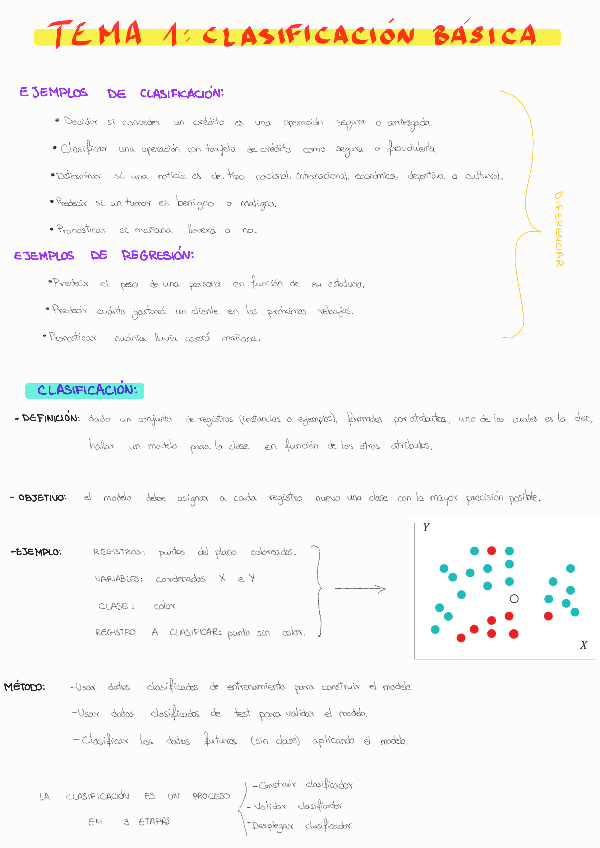 TEMA 1: CLASIFICACIÓN BÁSICA
EJEMPLOS DE CLASIFICACIÓN:
• Decidir si conceder un crédito es una operación segura o arriesgada
• Clasificar una operación con tarjeta de crédito como segura o fraudulenta
• Determinar si una noticia es de tipo nacional, internacional, económica, deportiva o cultural.
• Predecir si un tumor es benigno o maligno.
• Pronosticar si mañana lloverá o no.
EJEMPLOS DE REGRESIÓN:
• Predecir el peso de una persona en función de su estatura.
• Predecir cuánto gastará un cliente en las próximas rebajas.
• Pronosticar cuánta lluvia caerá mañana.
DIFERENCIAR
CLASIFICACIÓN:
- DEFINICIÓN: dado un conjunto de registros (instancias o ejemplos), formados por atributos, uno de los cuales es la clase,
hallar un modelo para la clase en función de los otros atributos.
- OBJETIVO: el modelo debe asignar a cada registro nuevo una clase con la mayor precisión posible.
- EJEMPLO: REGISTROS: puntos del plano coloreados.
VARIABLES: cordenadas X e Y
CLASE: color
REGISTRO A CLASIFICAR: punto sin color.
Y
X
MÉTODO: - Usar datos clasificados de entrenamiento para construir el modelo
- Usar datos clasificados de test para validar el modelo.
- Clasificar los datos futuros (sin clase) aplicando el modelo
LA CLASIFICACIÓN ES UN PROCESO
EN 3 ETAPAS
- Construir clasificador
- Validar clasificador
- Desplegar clasificador